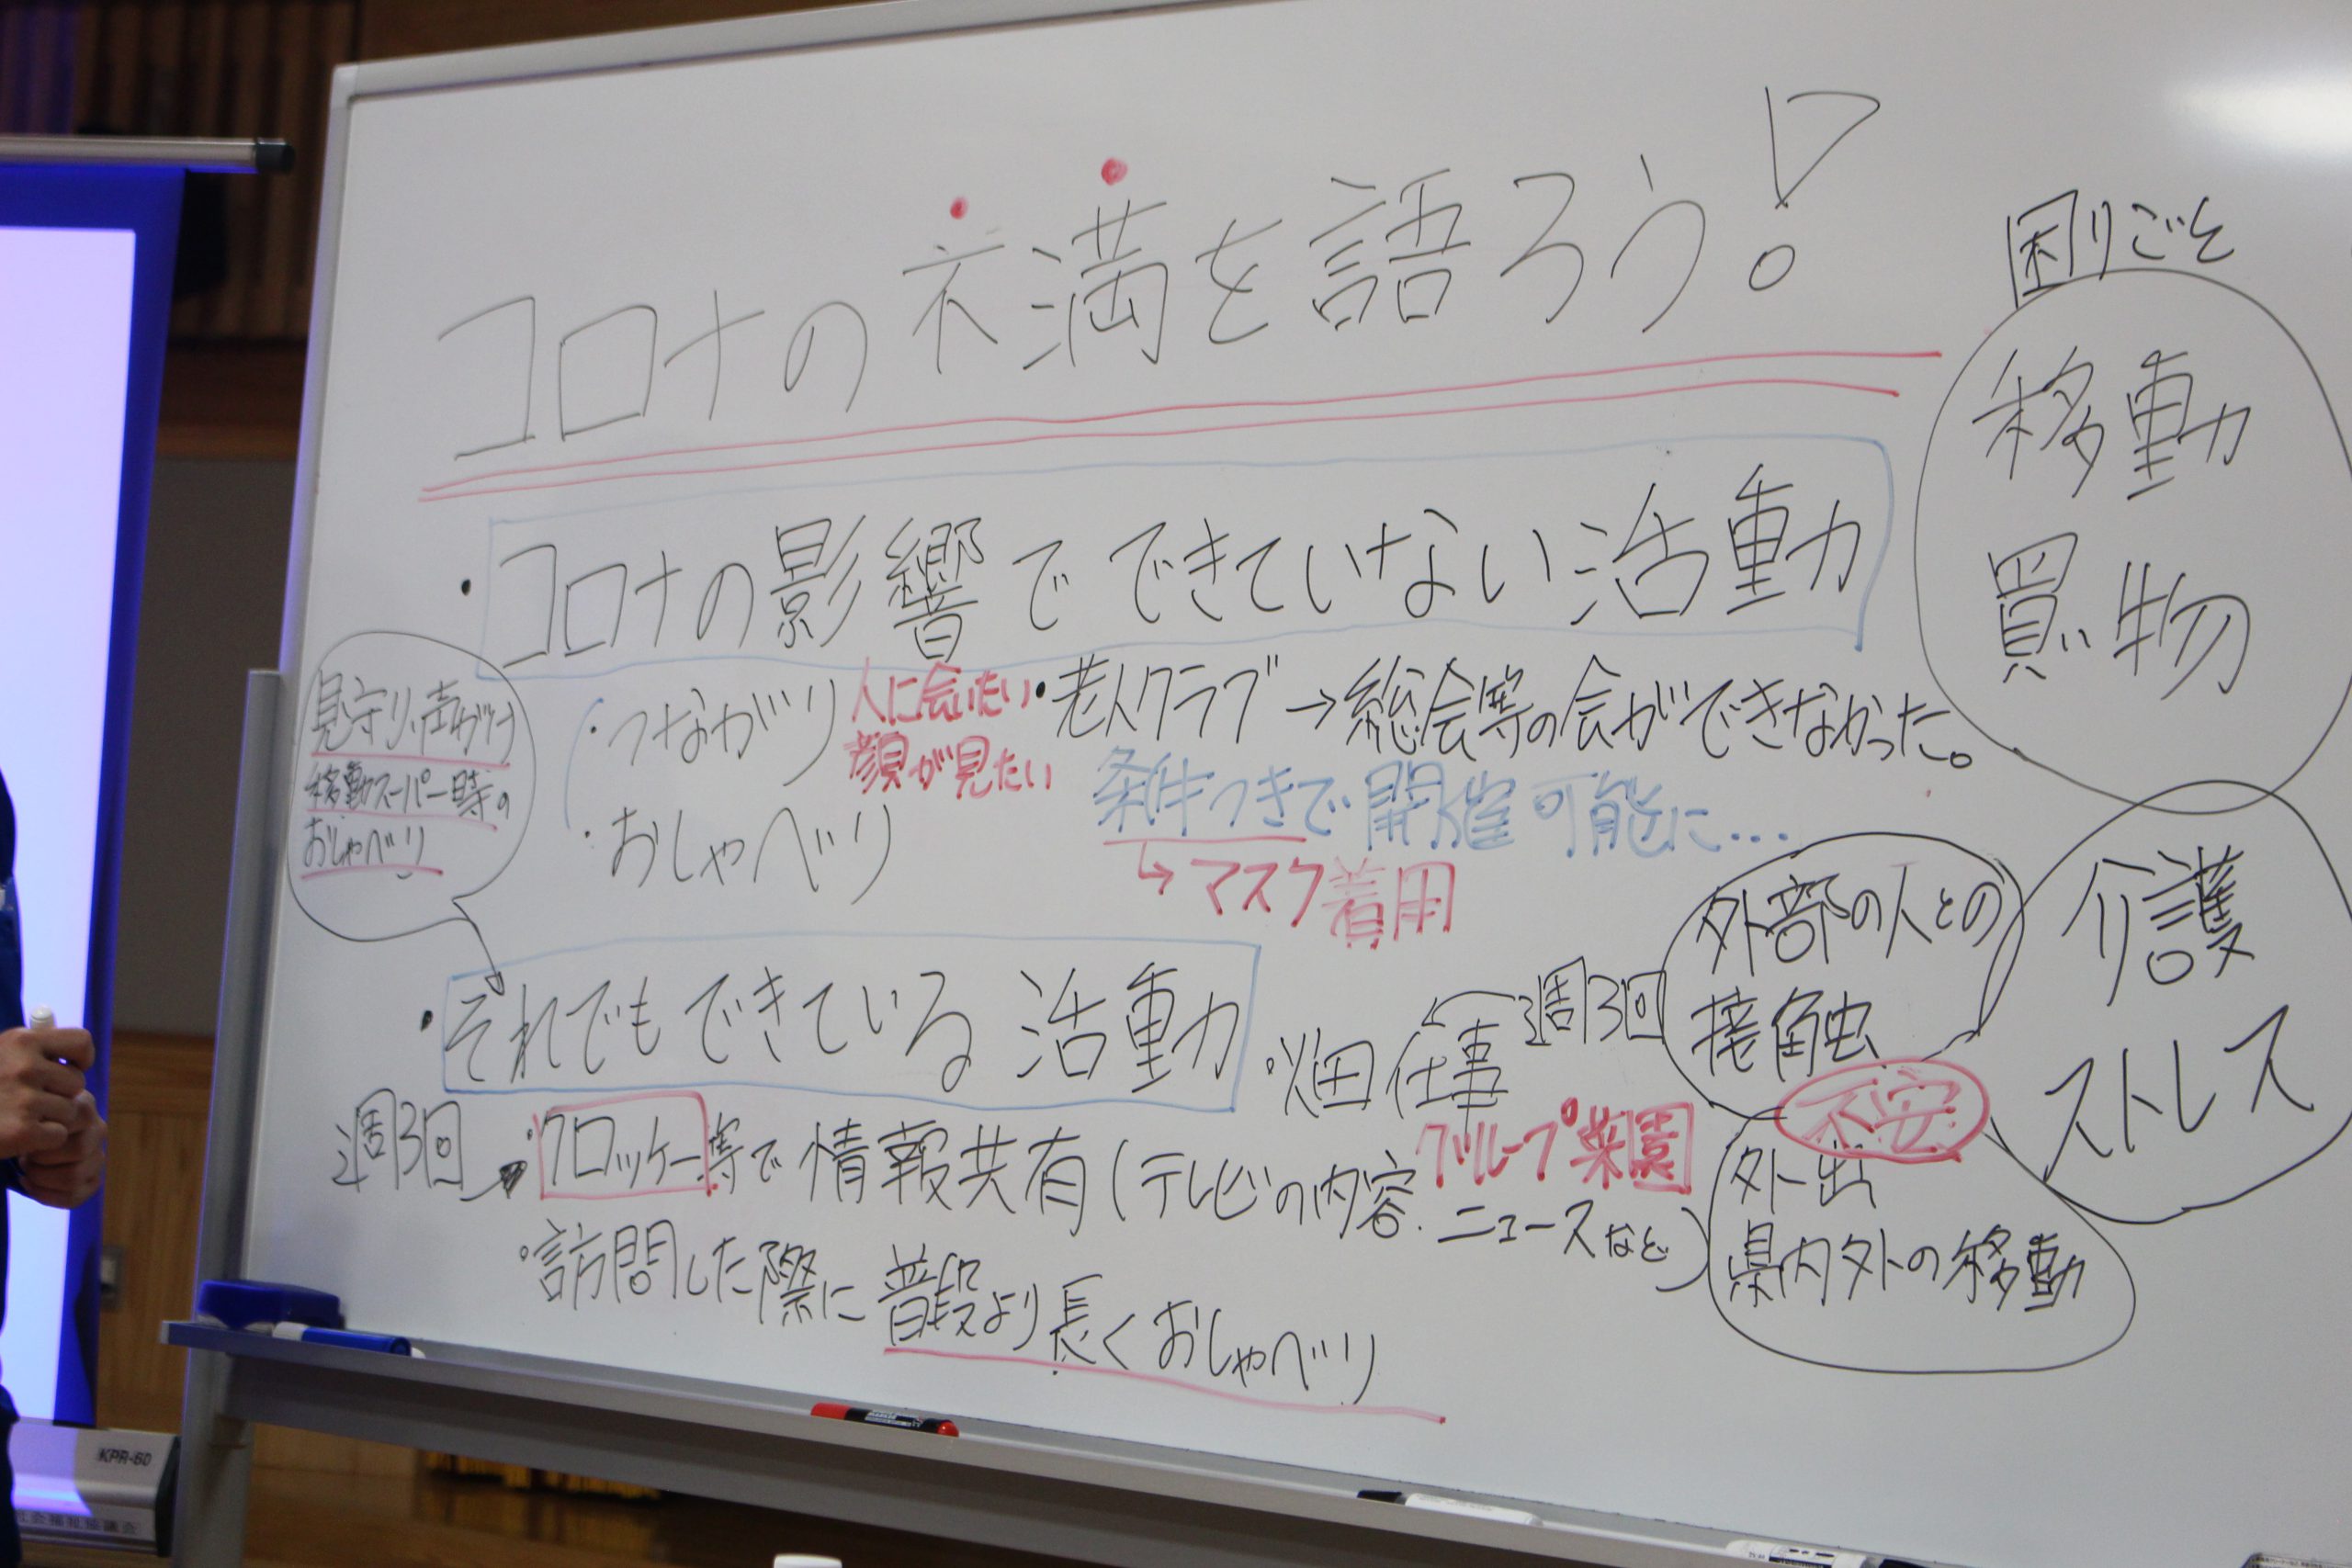 コロナの不満を語ろう!
困りごと
移動
買い物
・コロナの影響でできていない活動
見守り、声がけ
移動スーパー時の
おしゃべり
・つながり
人に会いたい
顔が見たい
・おしゃべり
・老人クラブ→総会等の会ができなかった。
条件つきで開催可能に…
↳マスク着用
介護
ストレス
外部の人との
接触
不安
外出
県内外の移動
・それでもできている活動
・畑仕事
週3回
グループ菜園
週3回
・クロッケー等で情報共有(テレビの内容.ニュースなど)
・訪問した際に普段より長くおしゃべり
KPR-60
社会福祉協議会